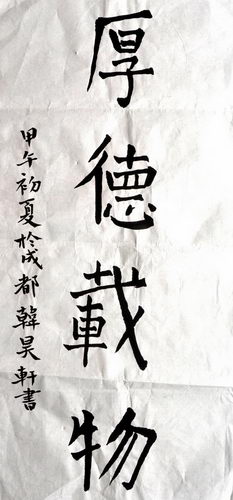 厚德載物
甲午初夏於成都韓昊軒書